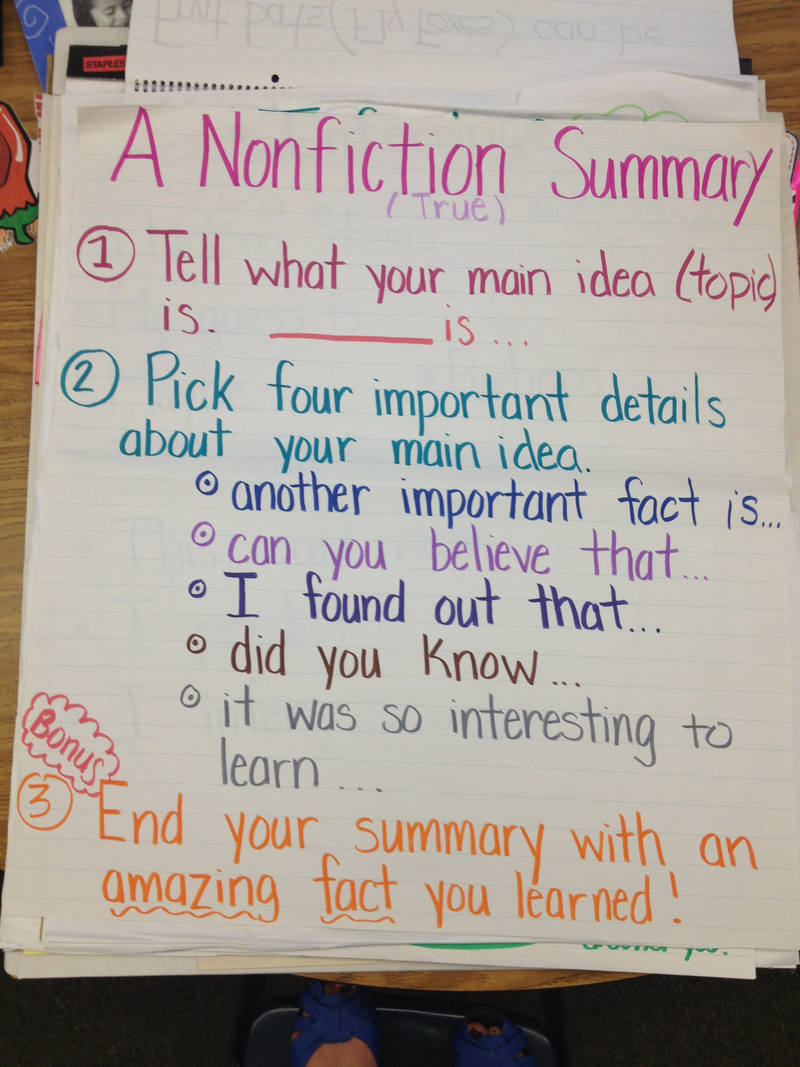 Fruit bats (Fly Foxes) can be
STAPLES
A Nonfiction Summary
(True)
① Tell what your main idea (topic)
is. ________ is ...
② Pick four important details
about your main idea.
⊙ another important fact is...
⊙ can you believe that...
⊙ I found out that...
⊙ did you know...
⊙ it was so interesting to
learn ...
Bonus
③ End your summary with an
amazing fact you learned!